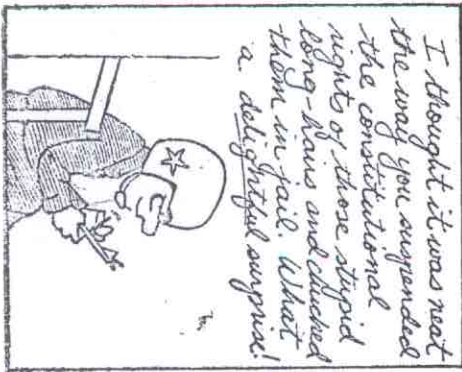 I thought it was neat
the way you suspended
the constitutional
rights of those stupid
long-hairs and chucked
them in jail. What
a delightful surprise!